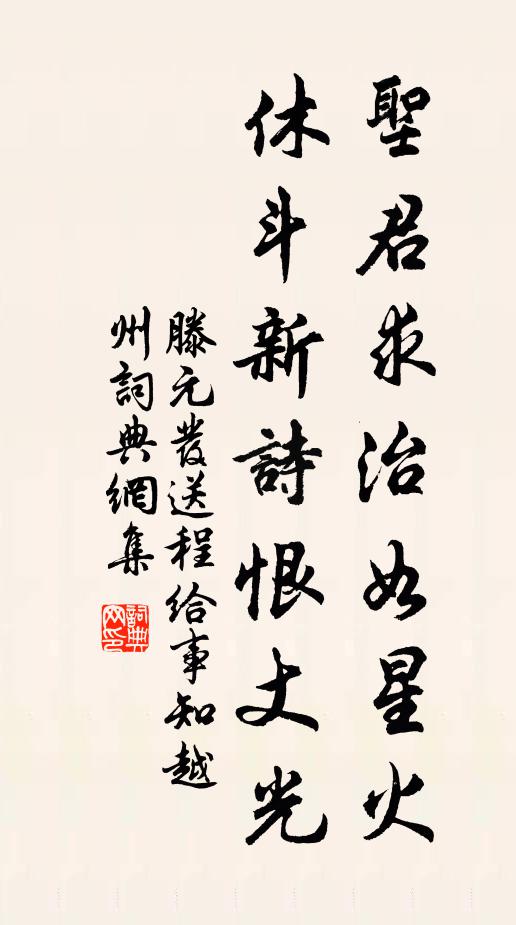 聖君求治如星火
休斗新詩恨丈光
滕元發送程給事知越
州詞典網集
詞典
网印